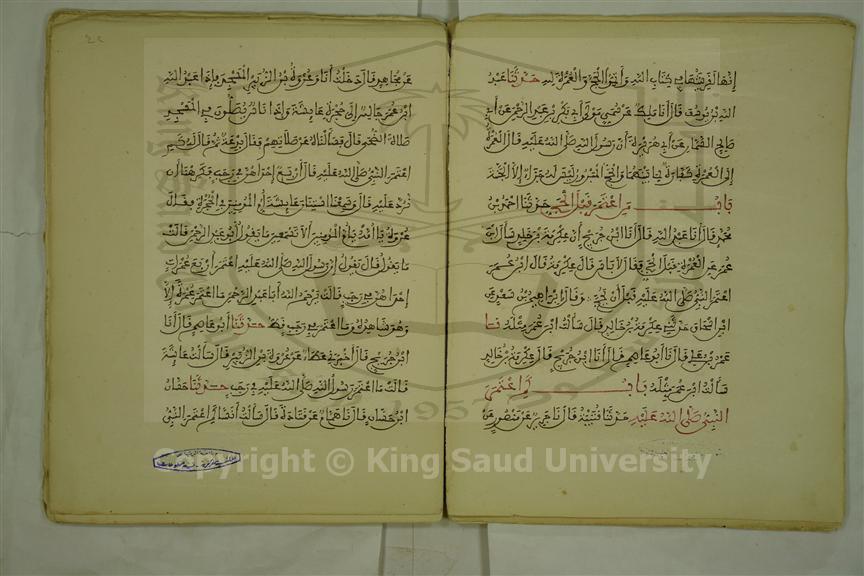 إنها لقرينتها في كتاب الله وأتموا الحج والعمرة لله حدثنا عبد
الله بن يوسف قال أنا ملك عن سمي مولى أبي بكر بن عبد الرحمن عن أبي
صالح السمان عن أبي هريرة أن رسول الله صلى الله عليه قال العمرة
إلى العمرة كفارة لما بينهما والحج المبرور ليس له جزاء إلا الجنة
باب من اعتمر قبل الحج حدثنا أحمد بن
محمد قال أنا عبد الله قال أنا ابن جريج أن عكرمة بن خالد سأل ابن
عمر عن العمرة قبل الحج فقال لا بأس قال عكرمة قال ابن عمر
اعتمر النبي صلى الله عليه قبل أن يحج وقال إبراهيم بن سعد عن
ابن إسحاق حدثني عكرمة بن خالد قال سألت ابن عمر مثله نا
عمرو بن علي قال نا أبو عاصم قال أنا ابن جريج قال عكرمة بن خالد
سألت ابن عمر مثله باب كم اعتمر
النبي صلى الله عليه حدثنا قتيبة قال نا جرير عن منصور عن
عن مجاهد قال دخلت أنا وعروة بن الزبير المسجد وإذا عبد الله
ابن عمر جالس إلى حجرة عائشة وإذا ناس يصلون في المسجد
صلاة الضحى قال فسألناه عن صلاتهم فقال بدعة ثم قال له كم
اعتمر النبي صلى الله عليه قال أربع إحداهن في رجب فكرهنا أن
نرد عليه قال وسمعنا استنان عائشة أم المومنين في الحجرة فقال
عروة يا أمه يا أم المومنين ألا تسمعين ما يقول أبو عبد الرحمن قالت
ما يقول قال يقول إن رسول الله صلى الله عليه اعتمر أربع عمرات
إحداهن في رجب قالت يرحم الله أبا عبد الرحمن ما اعتمر عمرة إلا
وهو شاهده وما اعتمر في رجب قط حدثنا أبو عاصم قال أنا
ابن جريج قال أخبرني عطاء عن عروة بن الزبير قال سألت عائشة
قالت ما اعتمر رسول الله صلى الله عليه في رجب حدثنا حسان
ابن حسان قال نا همام عن قتادة قال سألت أنسا كم اعتمر النبي
Copyright © King Saud University
1957